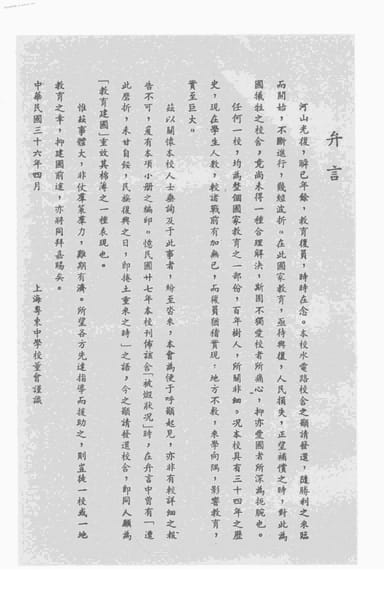 弁言
河山光復,瞬已年餘,教育復員,時時在念。本校水電路校舍之籲請發還,隨勝利之來臨
而開始,不斷進行,幾經波折。在此國家教育,亟待興復,人民損失,正望補償之時,對此為
國犧牲之校舍,竟尚未得一種合理解決,斯固不獨愛校者所痛心,抑亦愛國者所深為扼腕也。
任何一校,均為整個國家教育之一部份,百年樹人,所關非細。况本校具有三十四年之歷
史,現在學生人數,較諸戰前有加無已,而復員猶稽實現,地方不敷,來學向隅,影響教育,
實至巨大。
茲以關懷本校人士垂詢及于此事者,紛至沓來,本會為便于呼籲起見,亦非有較詳細之報
告不可,爰有本項小册之編印。憶民國廿七年本校刊佈該舍「被燬狀况」時,在弁言中曾有「遭
此磨折,未甘自餒,民族復興之日,即捲土重來之時」之語,今之籲請發還校舍,即同人願為
「教育建國」重效其棉薄之一種表現也。
惟茲事體大,非仗羣策羣力,難期有濟。所望各方先達指導而援助之,則豈徒一校或一地
教育之幸,抑建國前途,亦將同拜嘉賜矣。
中華民國三十六年四月
上海粵東中學校董會謹識